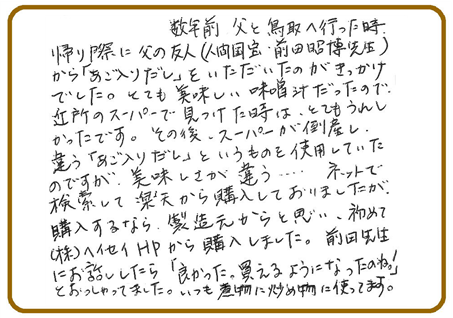 数年前 父と鳥取へ行った時、
帰り際に父の友人(人間国宝・前田昭博先生)
から「あご入りだし」といただいたのがきっかけ
でした。とても美味しい味噌汁だったので、
近所のスーパーで見つけた時は、とてもうれし
かったです。その後、スーパーが倒産し、
違う「あご入りだし」というものを使用していた
のですが、美味しさが違う……ネットで
検索して楽天から購入しておりましたが、
購入するなら、製造元からと思い、初めて
(株)ヘイセイHPから購入しました。前田先生
にお話ししたら「良かった。買えるようになったのね!」
とおっしゃってました。いつも煮物に炒め物に使ってます。